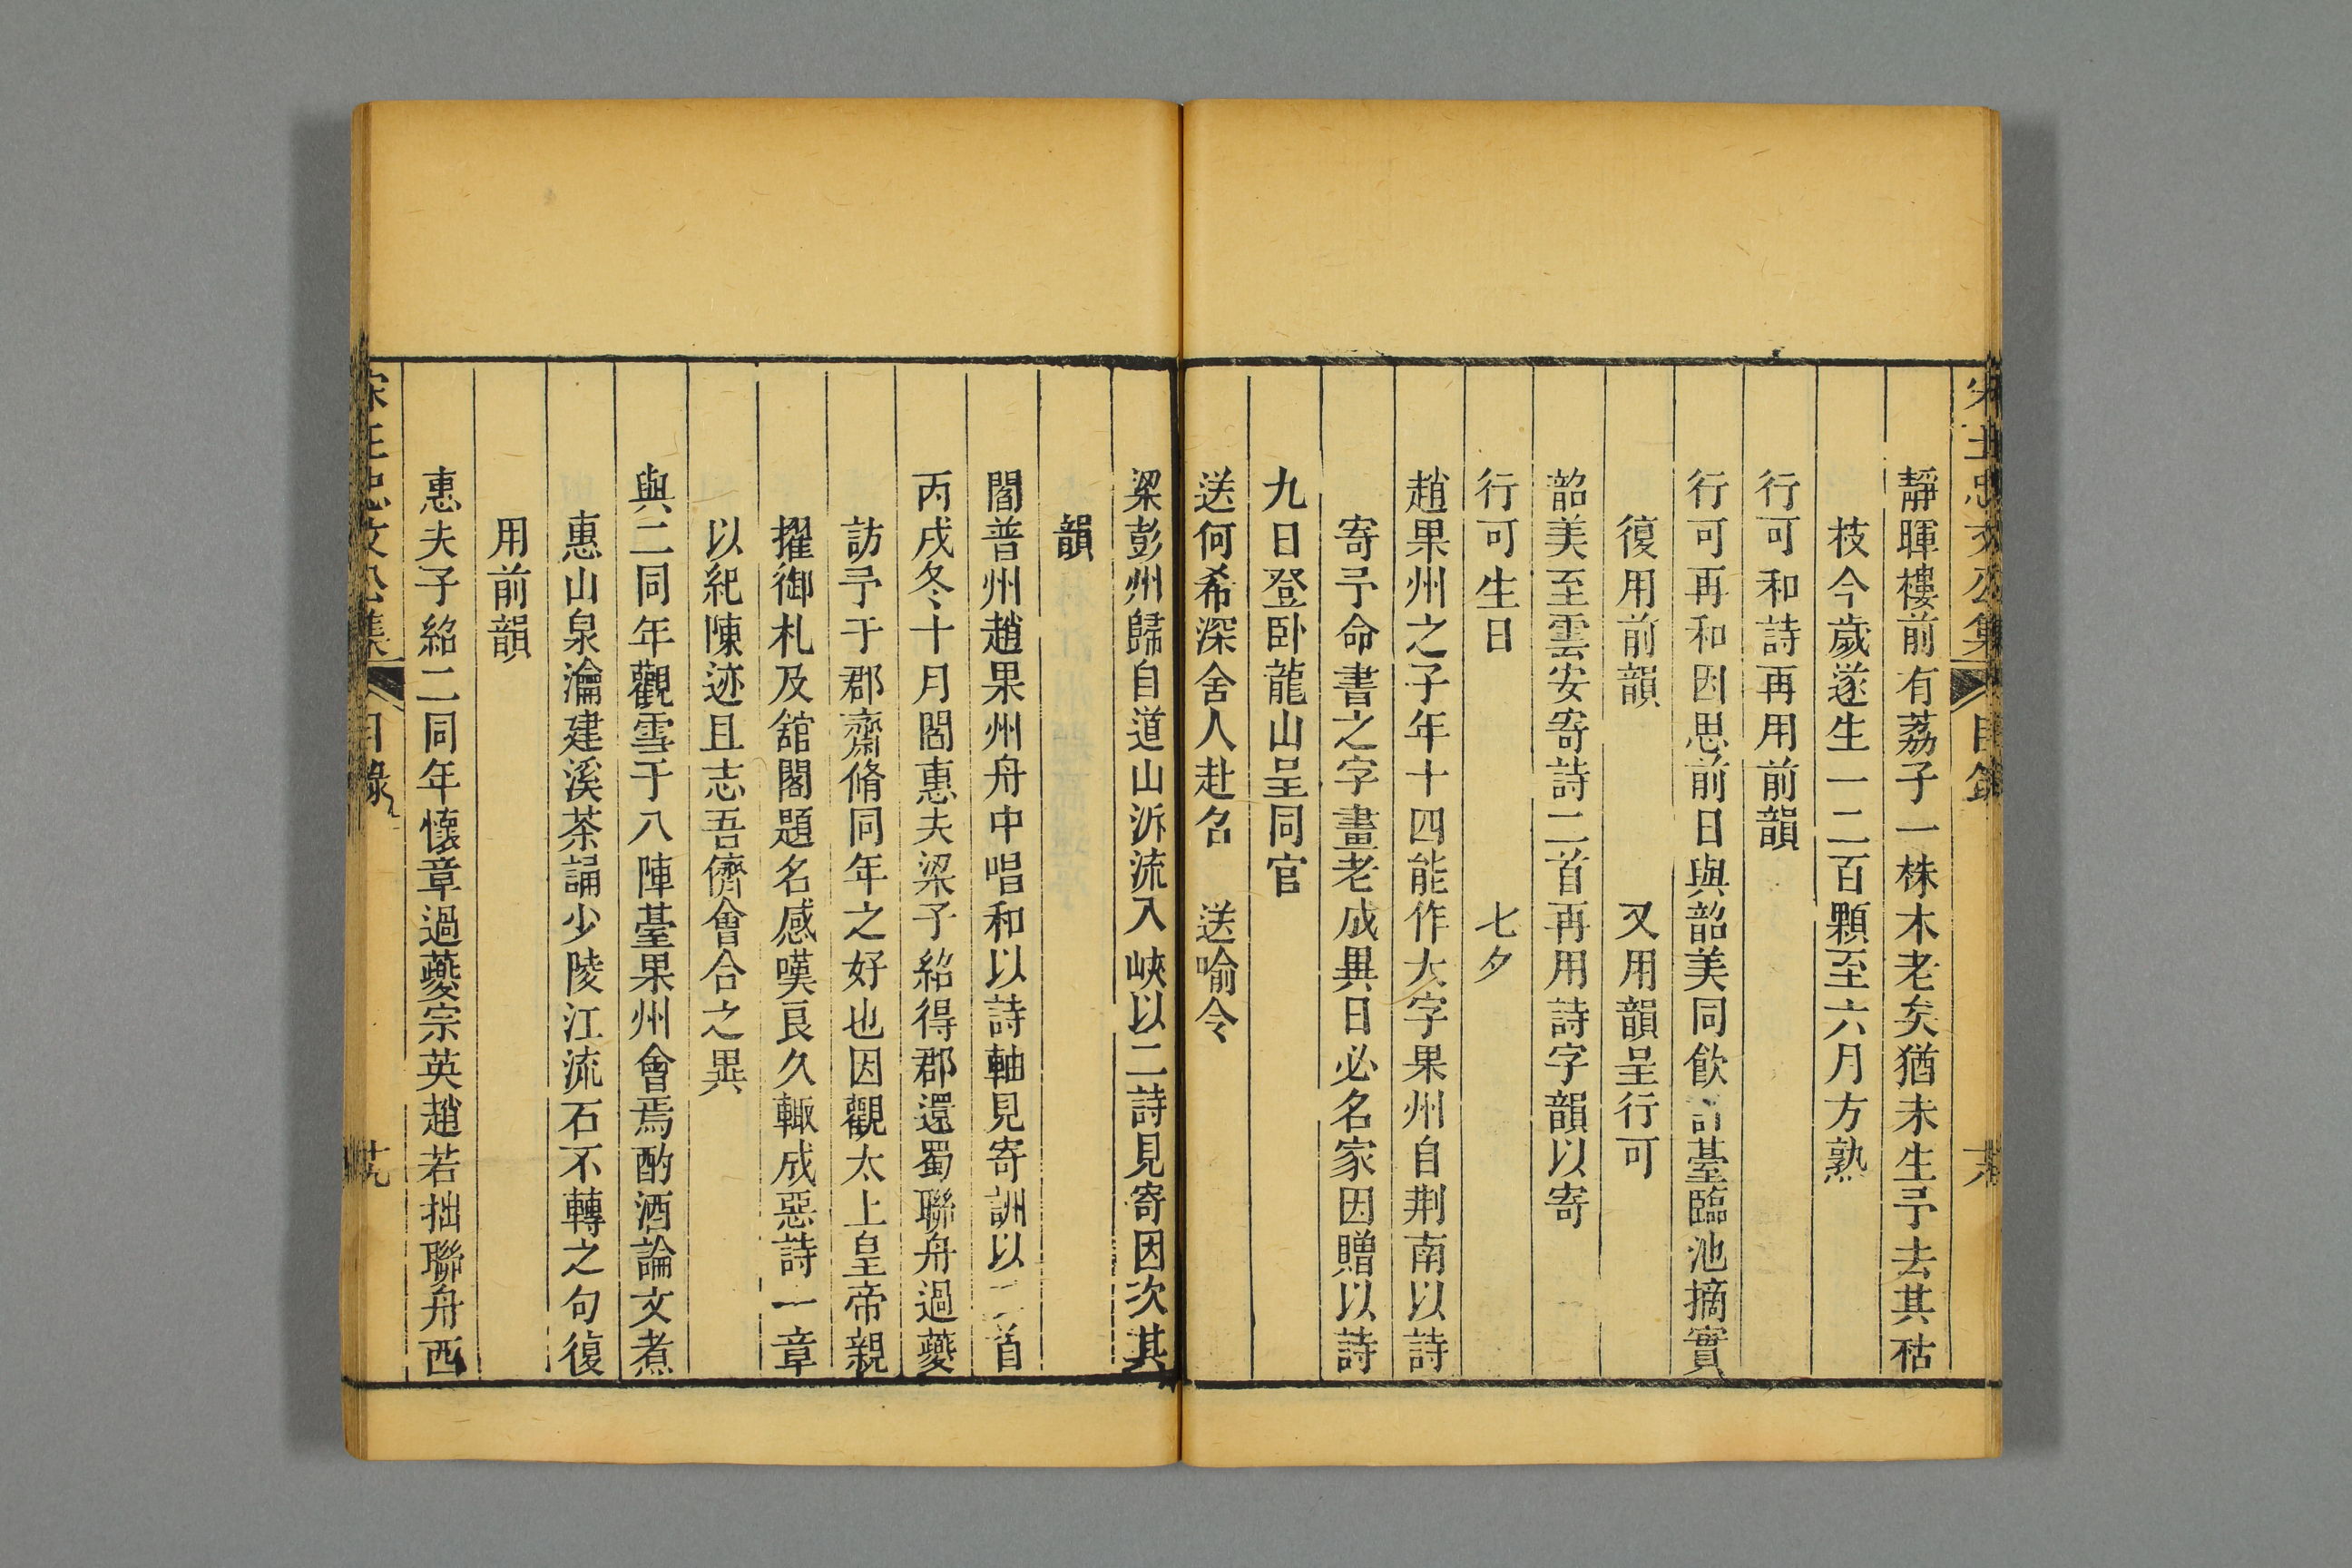 靜暉樓前有荔子一株木老矣猶未生予去其枯
枝今歲遂生一二百顆至六月方熟
行可和詩再用前韻
行可再和因思前日與韶美同飲計臺臨池摘實
復用前韻 又用韻呈行可
韶美至雲安寄詩二首再用詩字韻以寄
行可生日 七夕
趙果州之子年十四能作大字果州自荆南以詩
寄予命書之字畫老成異日必名家因贈以詩
九日登卧龍山呈同官
送何希深舍人赴召 送喻令
梁彭州歸自道山泝流入峽以二詩見寄因次其
韻
閻普州趙果州舟中唱和以詩軸見寄詶以二首
丙戌冬十月閻惠夫梁子紹得郡還蜀聯舟過夔
訪予于郡齋脩同年之好也因觀太上皇帝親
擢御札及舘閣題名感嘆良久輙成惡詩一章
以紀陳迹且志吾儕會合之異
與二同年觀雪于八陣臺果州會焉酌酒論文煮
惠山泉瀹建溪茶誦少陵江流石不轉之句復
用前韻
惠夫子紹二同年懷章過夔宗英趙若拙聯舟西
宋王忠文公集 目錄